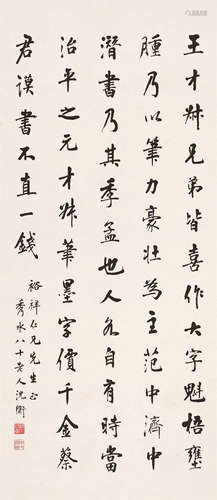 王才叔兄弟皆喜作大字魁梧壅
腫乃以筆力豪壯為主范中濟中
潛書乃其季孟也人各自有時當
治平之元才叔筆墨字價千金蔡
君謨書不直一錢
裕祥仁兄先生正
秀水八十老人沈衛